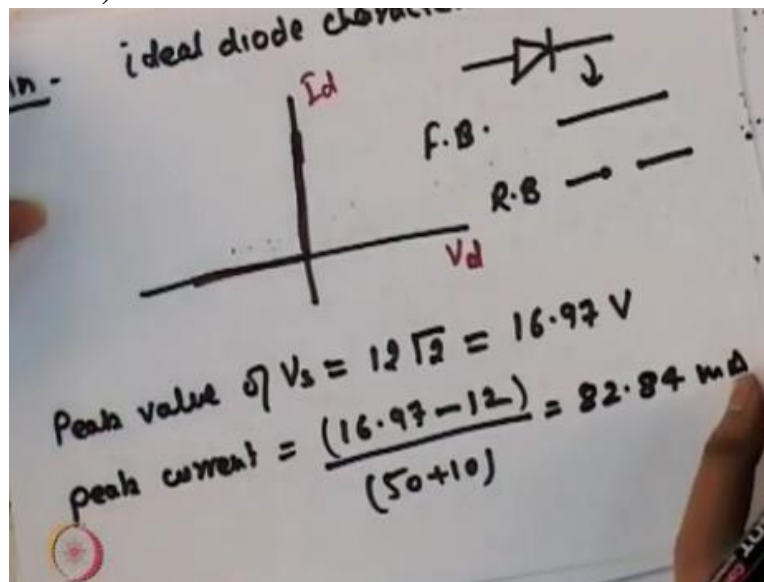 in - ideal diode
Id
F.B.
R.B
Vd
Peak value of Vs = 12√2 = 16.97 V
peak current = (16.97-12)/(50+10) = 82.84 mA